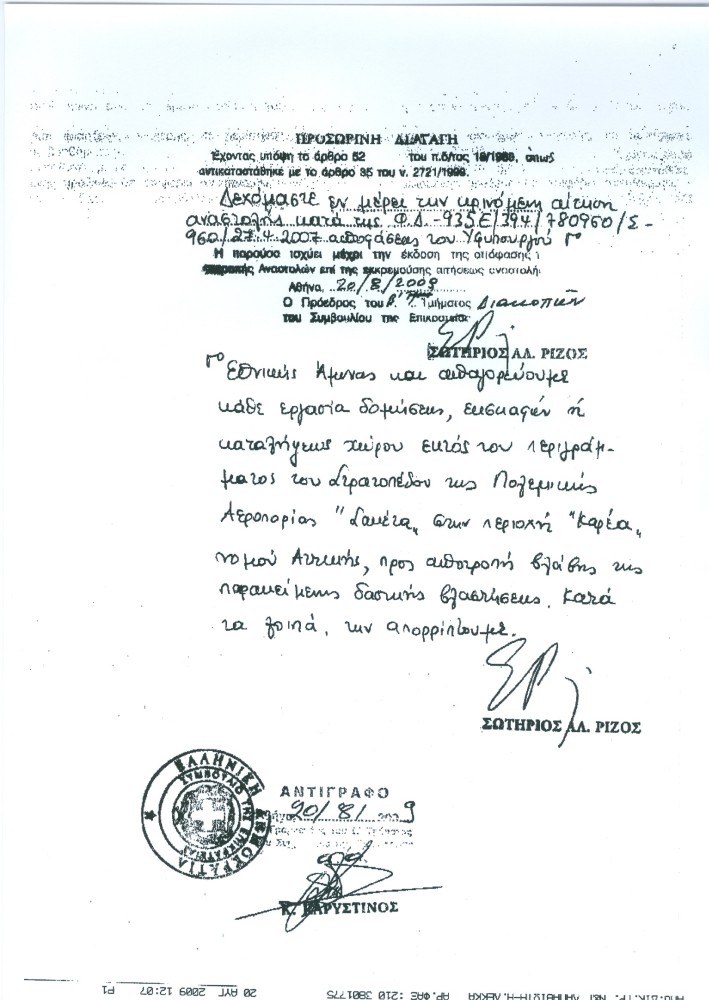 ΠΡΟΣΩΡΙΝΗ ΔΙΑΤΑΓΗ
Έχοντας υπόψη το άρθρο 52 του π.δ/τος 18/1989, όπως
αντικαταστάθηκε με το άρθρο 35 του ν. 2721/1999.
Δεχόμαστε εν μέρει την κρινόμενη αίτηση
αναστολής κατά της Φ.Δ.-935Ε/394/780960/Σ-
960/27.4.2007 αποφάσεως του Υφυπουργού
Η παρούσα ισχύει μέχρι την έκδοση της απόφασης
Αναστολών επί της εκκρεμούσης αιτήσεως αναστολή
Αθήνα, 20/8/2009
Ο Πρόεδρος του Β' Τμήματος Διακοπών
του Συμβουλίου της Επικρατείας
ΣΩΤΗΡΙΟΣ ΑΛ. ΡΙΖΟΣ
Εθνικής Άμυνας και απαγορεύουμε
κάθε εργασία δομήσεως, εκσκαφών ή
καταλήψεως χώρου εκτός του περιγράμ-
ματος του Στρατοπέδου της Πολεμικής
Αεροπορίας "Σακέτα" στην περιοχή "Καρέα"
νομού Αττικής, προς αποτροπή βλάβης της
παρακείμενης δασικής βλαστήσεως. Κατά
τα λοιπά, την απορρίπτουμε.
ΣΩΤΗΡΙΟΣ ΑΛ. ΡΙΖΟΣ
ΕΛΛΗΝΙΚΗ ΔΗΜΟΚΡΑΤΙΑ
ΣΥΜΒΟΥΛΙΟ ΤΗΣ ΕΠΙΚΡΑΤΕΙΑΣ
ΑΝΤΙΓΡΑΦΟ
20/8/2009
Κ. ΚΑΡΥΣΤΙΝΟΣ
ΑΡ.ΦΑΞ :210 3801775
20 ΑΥΓ 2009 12:07 P1